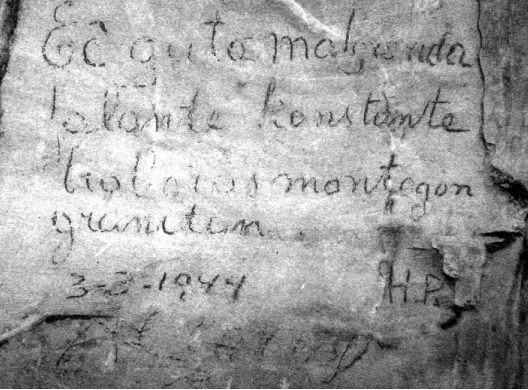 Eĉ guto malgranda
falante konstante
traboras montegon
granitan.
3-3-1944 H.P.